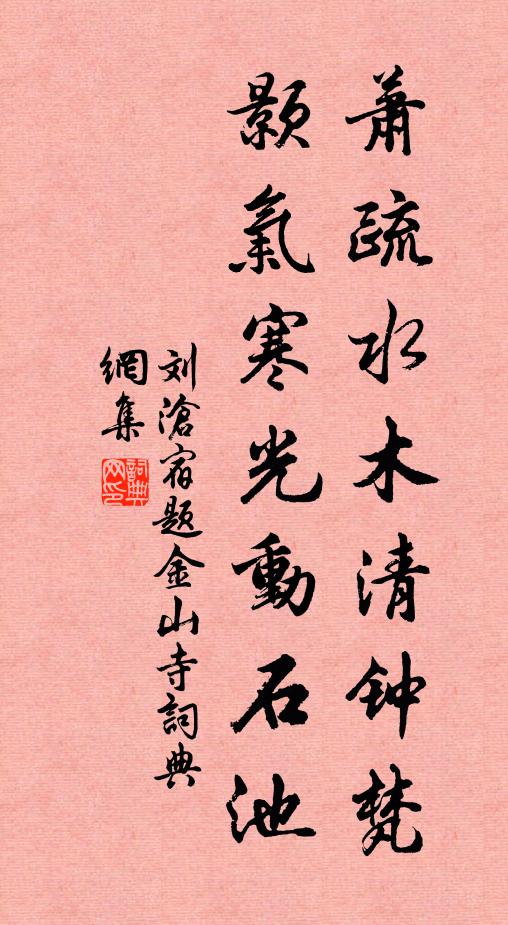 蕭疏水木清钟梵
颢氣寒光動石池
刘滄宿题金山寺詞典
網集
詞典
网印